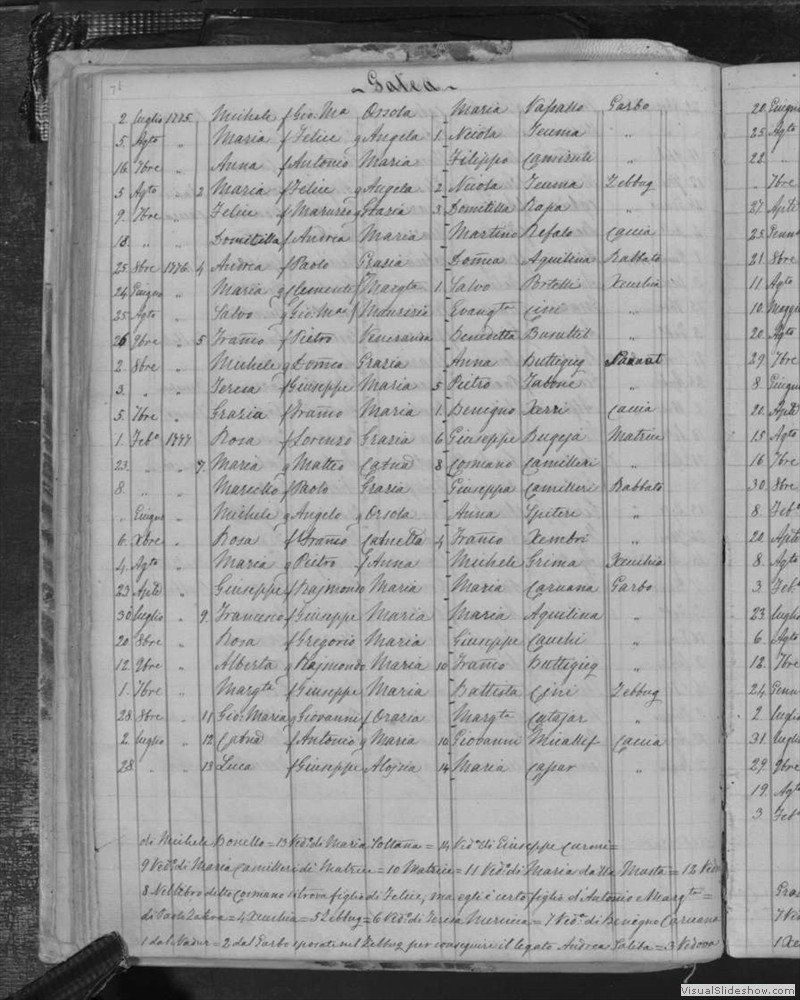 71
~ Galea ~
2 luglio 1775 Michele f Gio. Ma Orsola Maria Vassallo Garbo
5 Agto „ Maria f Felice g Angela 1 Nicola Teuma „
16 7bre „ Anna f Antonio Maria Filippo Camisuli „
5 Agto „ 2 Maria f Felice g Angela 2 Nicola Teuma Zebbug
9 7bre „ Felice f Maruzzo g Grazia 3 Domitilla Rapa „
18 „ „ Domitilla f Andrea Maria Martino Refalo Caccia
25 8bre 1776 4 Andrea f Paolo Grazia Aquilina Rabbato
24 Giugno „ Maria g Clemente f Margta 1 Salvo Portelli Xeuchia
25 Agto „ Salvo g Gio. Ma f Maurizia Evangta Cini „
26 9bre „ 5 Franco f Pietro Veneranda Benedetta Busuttil „
2 8bre „ Michele g Domco Grazia Anna Buttigieg
3 „ „ Teresa f Giuseppe Maria 5 Pietro Tabone „
5 7bre „ Grazia f Franco Maria 1 Benigno Xerri Caccia
1 Febo 1777 Rosa f Lorenzo Grazia 6 Giuseppe Bugeja Matrice
23 „ „ 7 Maria g Matteo Catna 8 Cosmano Camilleri „
8 „ „ Marcello f Paolo Grazia Giuseppa Camilleri Rabbato
„ Giugno „ Michele g Angelo g Orsola Anna Spiteri „
6 Xbre „ Rosa f Franco 4 Franco Xembri „
4 Agto „ Maria g Pietro f Anna Michele Grima Xeuchia
23 Aple „ Giuseppe f Rajmondo Maria Maria Caruana Garbo
30 luglio „ 9 Francesco f Giuseppe Maria Maria Aquilina „
20 8bre „ Rosa f Gregorio Maria Giuseppe Cauchi „
12 9bre „ Alberta g Rajmondo Maria 10 Franco Buttigieg „
1 7bre „ Margta f Giuseppe Maria Battista Cini Zebbug
28 8bre „ 11 Gio: Maria g Giovanni f Grazia Margta Cutajar „
2 luglio „ 12 Catna f Antonio g Maria 10 Giovanni Micallef Caccia
28 „ „ 13 Luca f Giuseppe Alojsia 14 Maria „
di Michele Bonello = 13 Vedo di Maria Soltana = 14 Veda di Giuseppe =
9 Vedo di Maria Camilleri di Matrice = 10 Matrice = 11 Vedo di Maria dalla = 12 Veda
8 Nel libro detto Cosmano si trova figlio di Felice, ma egli è certo figlio d'Antonio e Margta =
di Paolo = 4 Xeuchia = 5 Zebbug = 6 Veda di Teresa = 7 Veda di Benigno Caruana
1 dal Nadur = 2 dal Garbo sposati nel Zebbug per conseguire il legato Andrea = 3 Vedova
20 Giugno
25 Agto
22 „
„ 7bre
27 Aple
25 Genn
21 8bre
11 Agto
10 Maggio
20 Agto
29 7bre
8 Giugno
20 Aple
15 Agto
16 7bre
30 8bre
8 Febo
20 Aple
8 Agto
3 Febo
23 luglio
6 Agto
12 7bre
24 Genn
2 luglio
31 luglio
29 9bre
19 Agto
3 Febo
7 Ved
VisualSlideshow.com